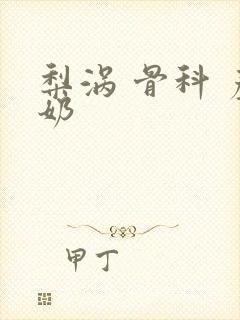 梨涡 骨科
奶
甲丁